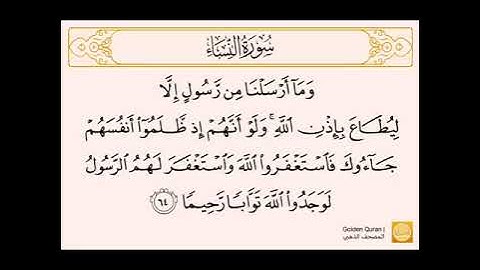 سُورَةُ النِّسَاءِ
وَمَآ أَرْسَلْنَا مِن رَّسُولٍ إِلَّا
لِيُطَاعَ بِإِذْنِ ٱللَّهِ ۚ وَلَوْ أَنَّهُمْ إِذ ظَّلَمُوٓا۟ أَنفُسَهُمْ
جَآءُوكَ فَٱسْتَغْفَرُوا۟ ٱللَّهَ وَٱسْتَغْفَرَ لَهُمُ ٱلرَّسُولُ
لَوَجَدُوا۟ ٱللَّهَ تَوَّابًا رَّحِيمًا ٦٤
Golden Quran |
المصحف الذهبي